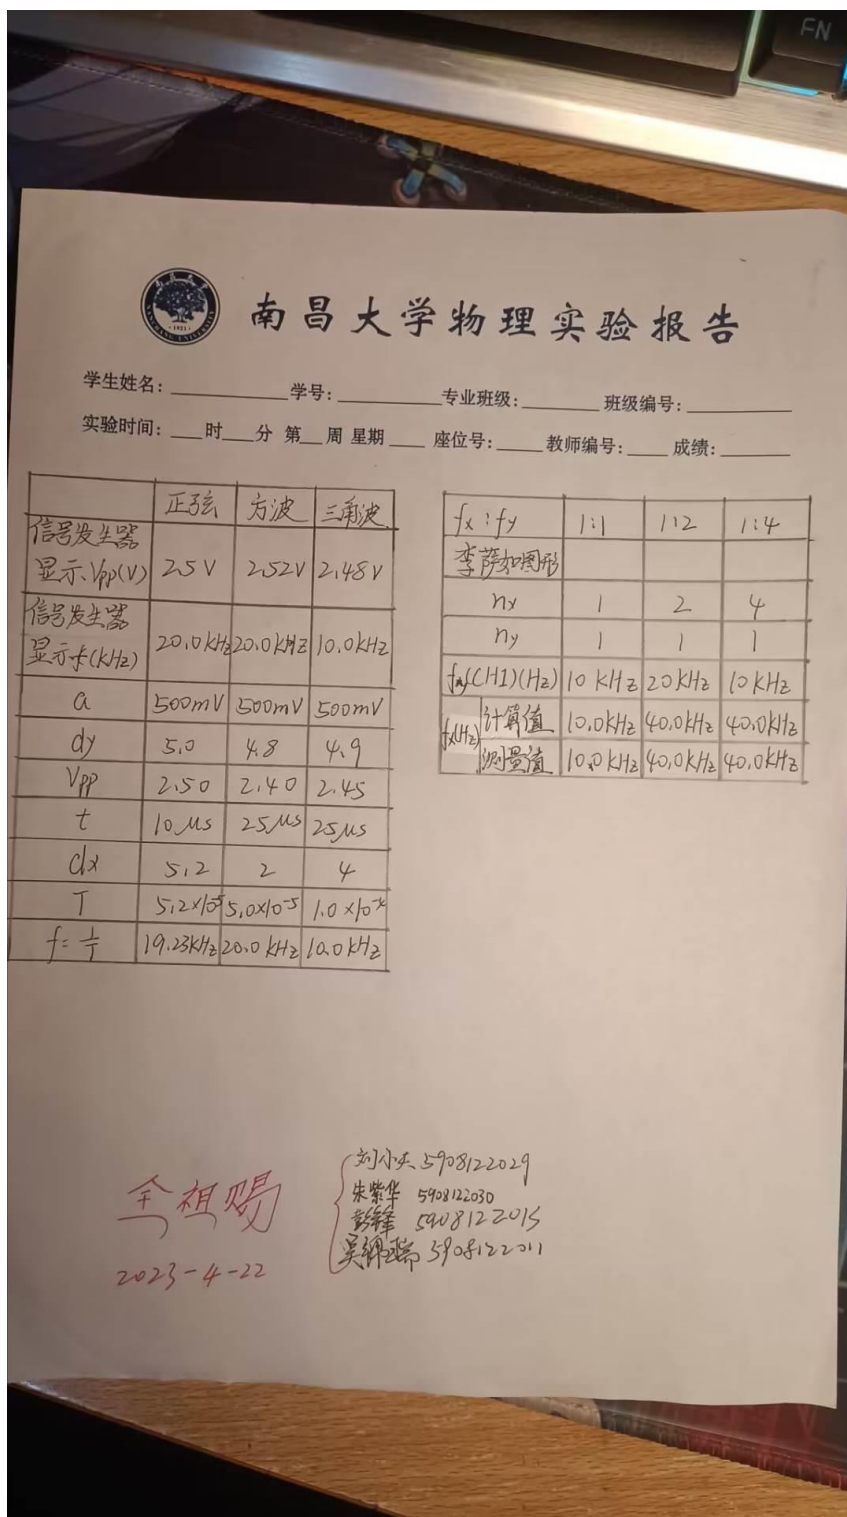 FN
南昌大学物理实验报告
学生姓名：________学号：________专业班级：________班级编号：________
实验时间：___时___分 第__周 星期____ 座位号：____教师编号：____成绩：______
正弦 方波 三角波
信号发生器
显示Vpp(V) 2.5V 2.52V 2.48V
信号发生器
显示f(kHz) 20.0kHz 20.0kHz 10.0kHz
a 500mV 500mV 500mV
dy 5.0 4.8 4.9
Vpp 2.50 2.40 2.45
t 10μs 25μs 25μs
dx 5.2 2 4
T 5.2×10⁻⁵ 5.0×10⁻⁵ 1.0×10⁻⁴
f=1/T 19.23kHz 20.0kHz 10.0kHz
fx:fy 1:1 1:2 1:4
李萨如图形
nx 1 2 4
ny 1 1 1
(CH1)(Hz) 10kHz 20kHz 10kHz
fx(Hz) 计算值 10.0kHz 40.0kHz 40.0kHz
测量值 10.0kHz 40.0kHz 40.0kHz
祖赐
2023-4-22
刘小 5908122029
朱紫华 5908122030
彭 5908122015
吴 瑞 5908122011